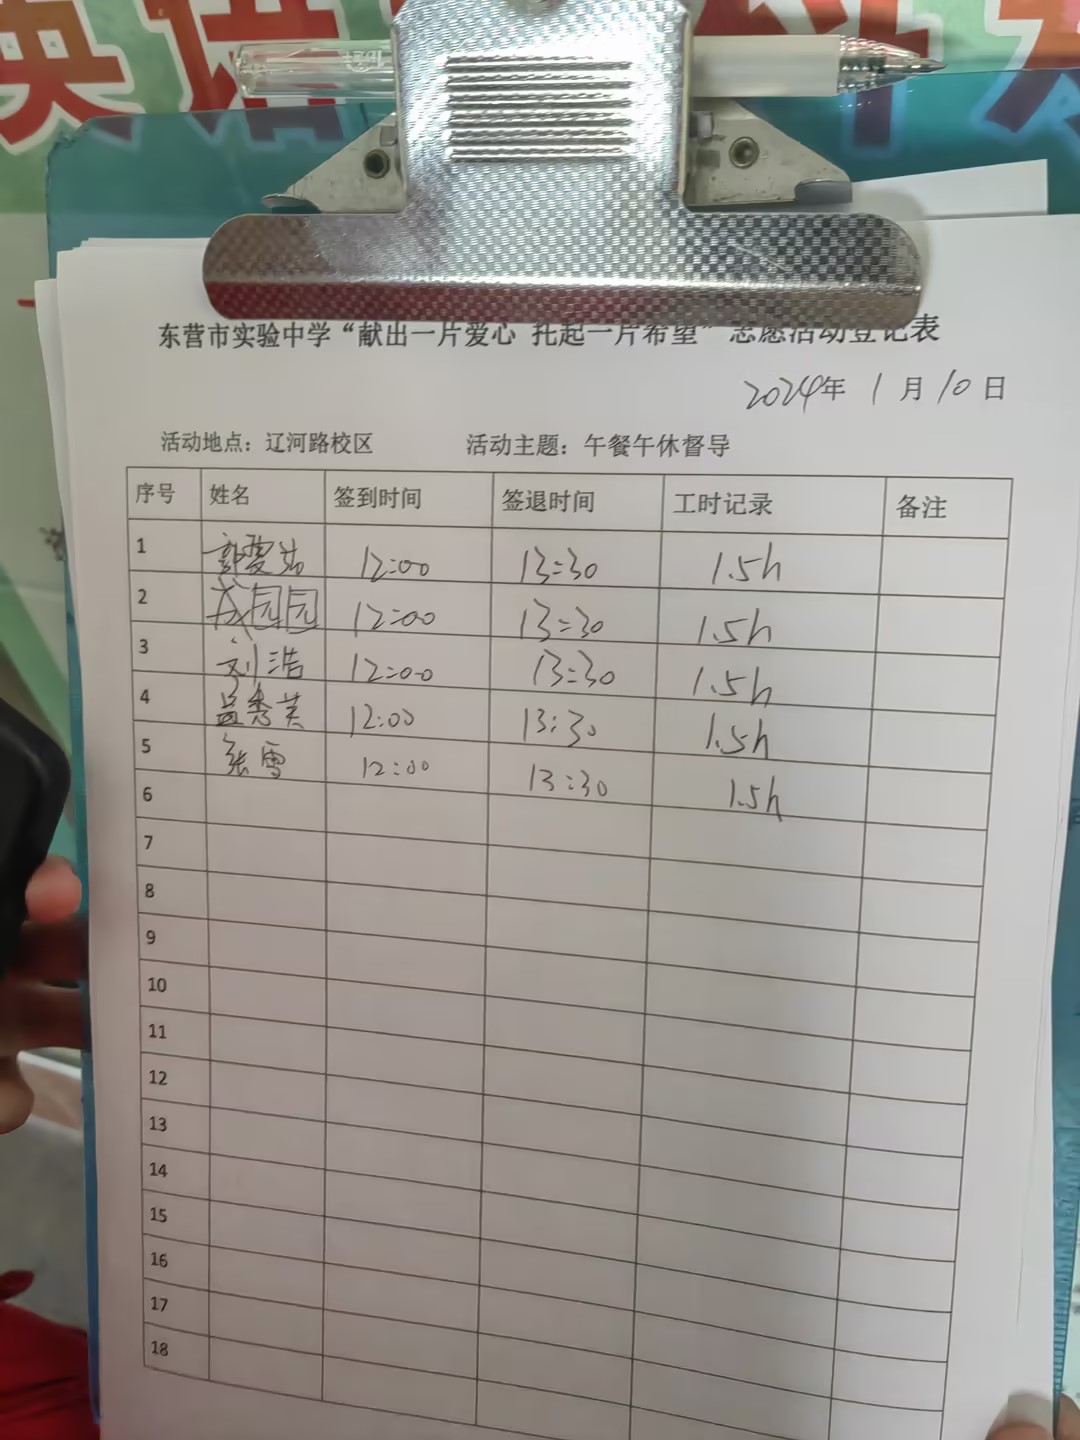 英语
东营市实验中学“献出一片爱心 托起一片希望”志愿活动登记表
2024年 1 月 10 日
活动地点：辽河路校区 活动主题：午餐午休督导
序号 姓名 签到时间 签退时间 工时记录 备注
1 12:00 13:30 1.5h
2 园园 12:00 13:30 1.5h
3 刘浩 12:00 13:30 1.5h
4 秀英 12:00 13:30 1.5h
5 张雪 12:00 13:30 1.5h
6
7
8
9
10
11
12
13
14
15
16
17
18